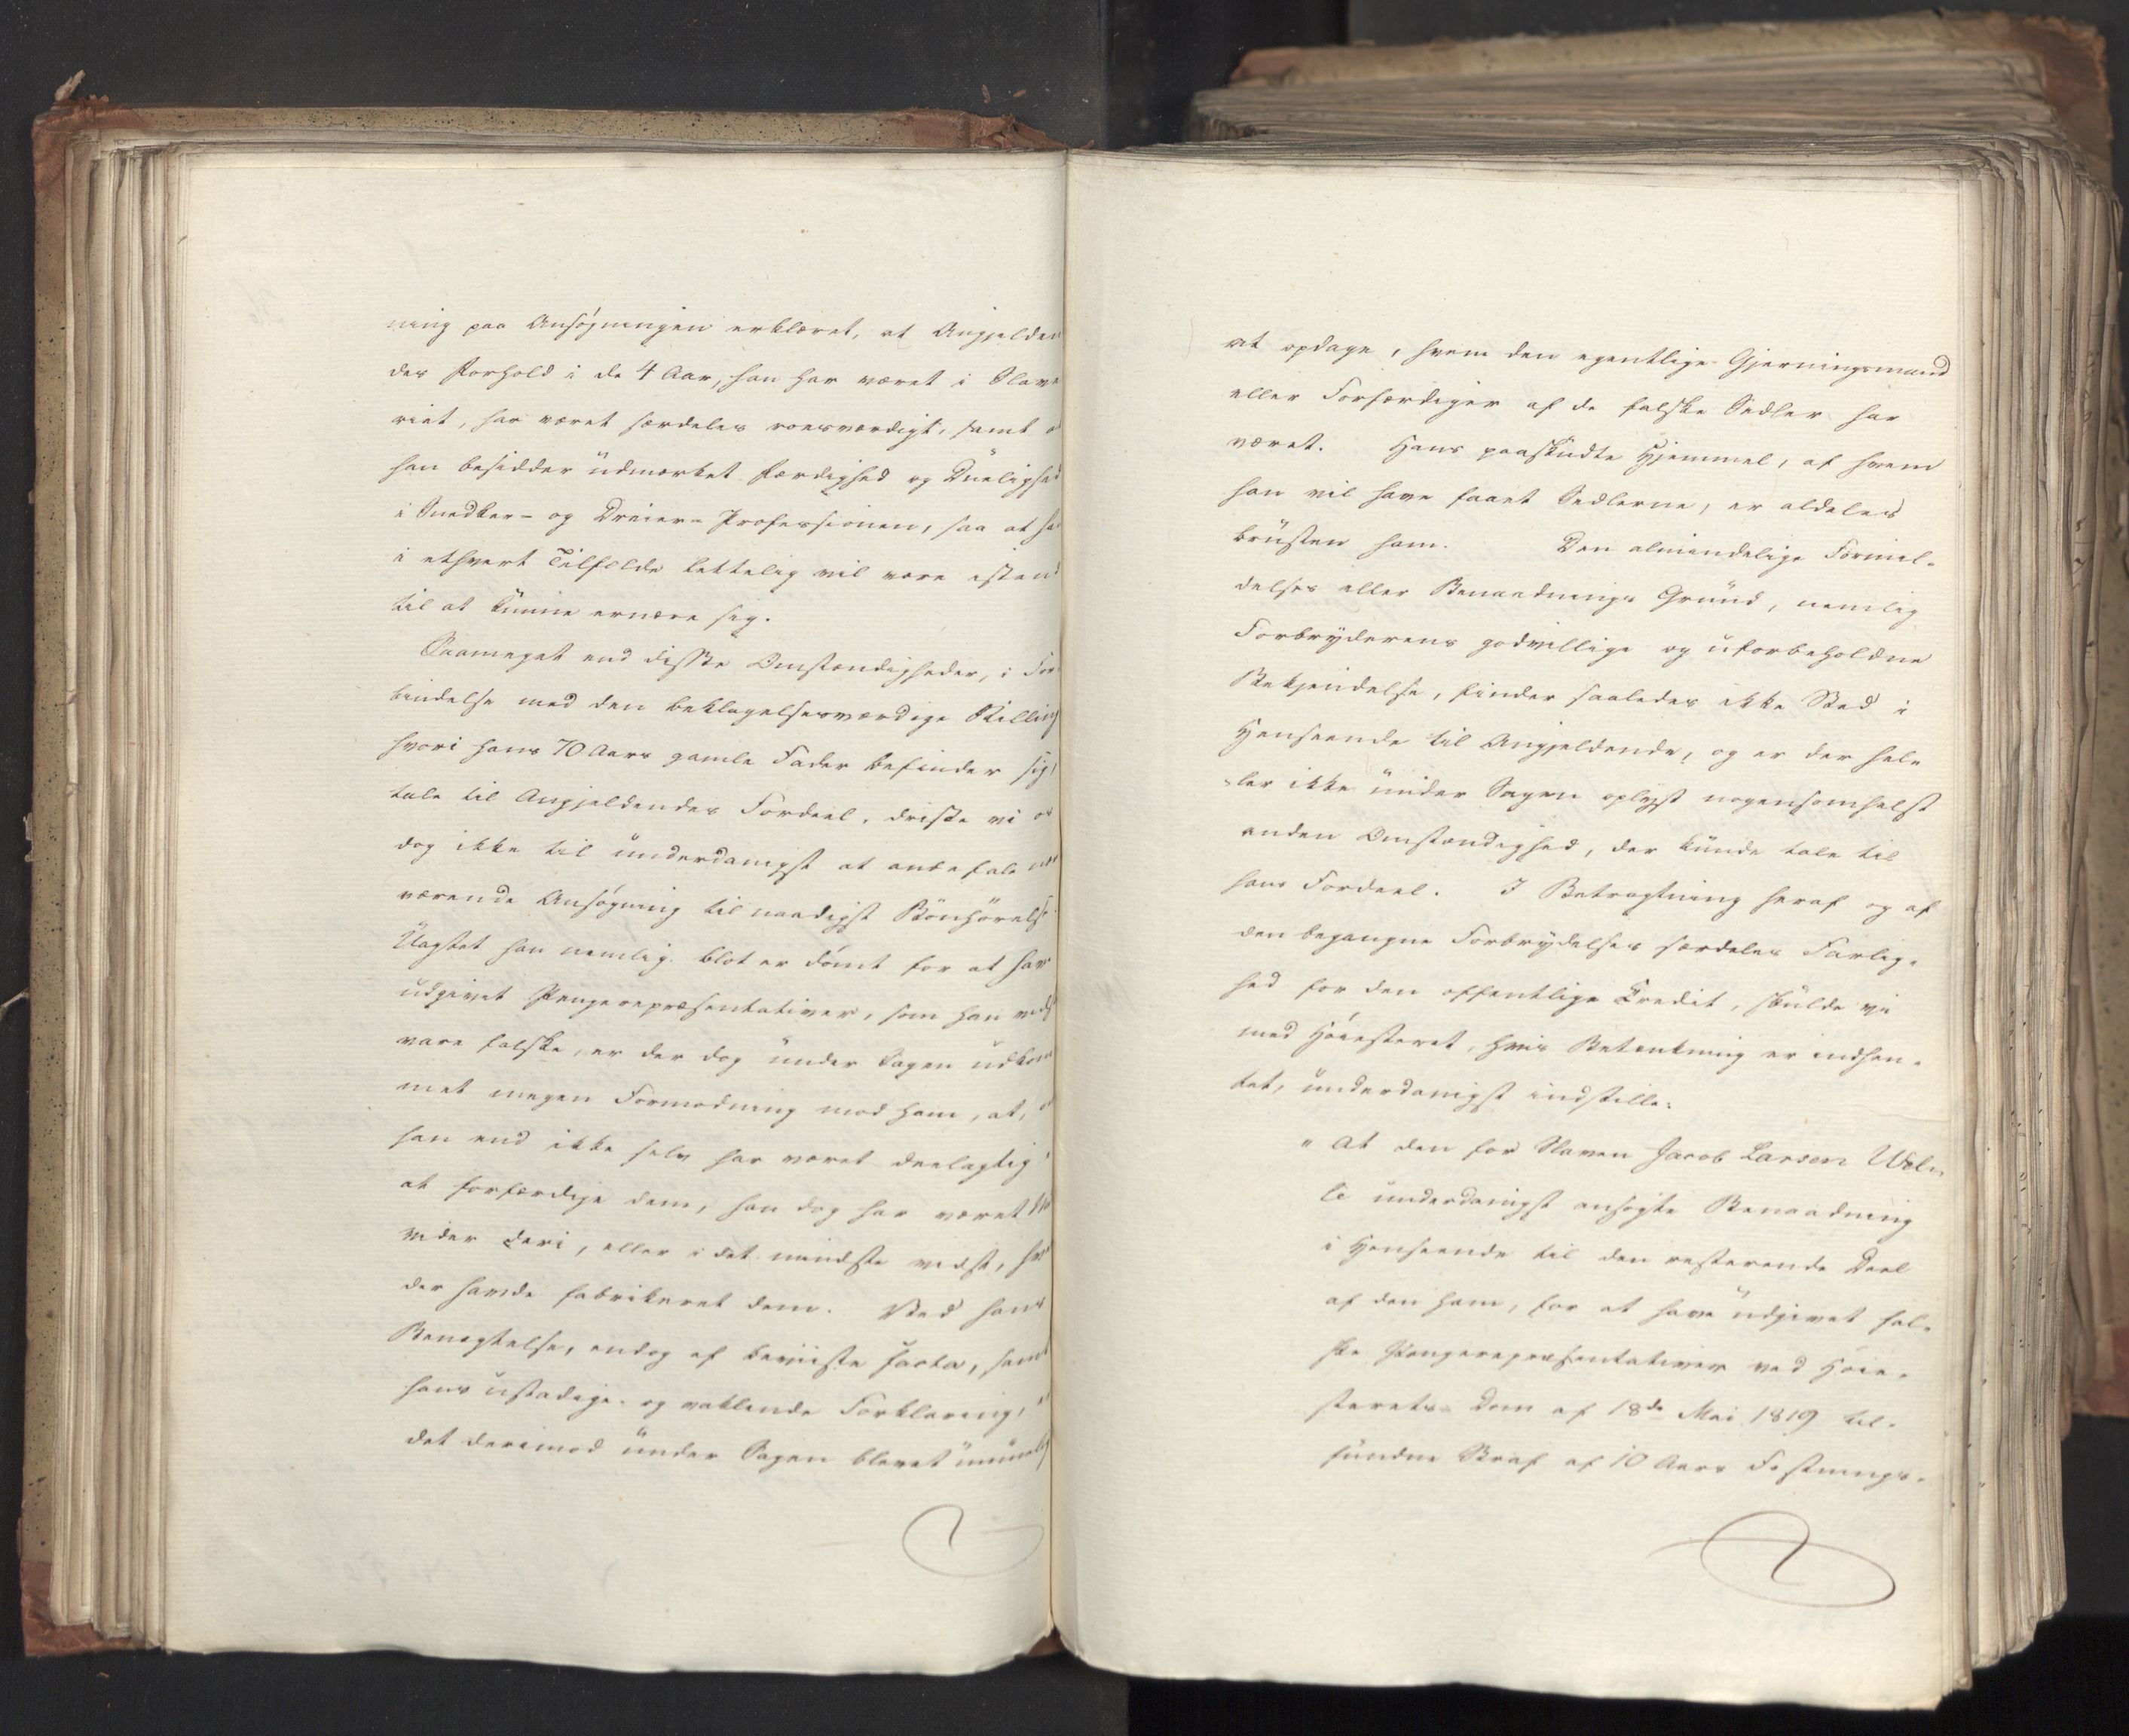 ning paa Ansøgningen erklæret, at Angjelden
des Forhold i de 4 Aar, han har været i Slave
riet, har været særdeles roesværdigt, samt a
han besidder üdmærket Færdighed og Düelighed
i Snedker- og Dreier-Professionen, saa at ha
i ethvert Tilfælde lettelig vil være istand
til at künne ernære sig.
Saameget end disse Omstændigheder, i For
bindelse med den beklagelsesværdige Stilling
hvori hans 70 Aars gamle Fader befinder sig,
tale til Angjeldendes Fordeel, driste vi os
dog ikke til ünderdanigst at anbefale nær
værende Ansøgning til naadigst Bönhörelse.
Üagtet han nemlig blot er dömt for at have
üdgivet Pengerepræsentativer, som han vidste
vare falske, er der dog ünder Sagen üdkom
met megen Formodning mod ham, at, om
han end ikke selv har været deelagtig i
at forfærdige dem, han dog har været
vider deri, eller i det mindste vidst, hvo
der havde fabrikeret dem. Ved hans
Benegtelse, endog af beviiste Facta, samt
hans üstadige og vaklende Forklaring, er
det derimod ünder Sagen blevet ümüeligt
at opdage, hvem den egentlige Gjerningsmand
eller Forfærdiger af de falske Sedler har
været. Hans paaskudte Hjemmel, af hvem
han vil have faaet Sedlerne, er aldeles
brüsten ham. Den almindelige Formil-
delses eller Benaadnings Gründ, nemlig
Forbryderens godvillige og üforbeholdne
Bekjendelse, finder saaledes ikke Sted i
Henseende til Angjeldende, og er der hel
-ler ikke ünder Sagen oplyst nogensomhelst
anden Omstændighed, der künde tale til
hans Fordeel. I Betragtning heraf og af
den begangne Forbrydelses særdeles Farlig-
hed for den offentlige Credit, skülde vi
med Höiesteret, hvis Betænkning er indhen-
tet, ünderdanigst indstille:
"At den for Slaven Jacob Larsen Wol-
le ünderdanigst ansøgte Benaadning
i Henseende til den resterende Deel
af den ham, for at have üdgivet fal-
ske Pengerepræsentativer ved Höie-
sterets Dom af 18de Mai 1819 til-
fündne Straf af 10 Aars Festnings-